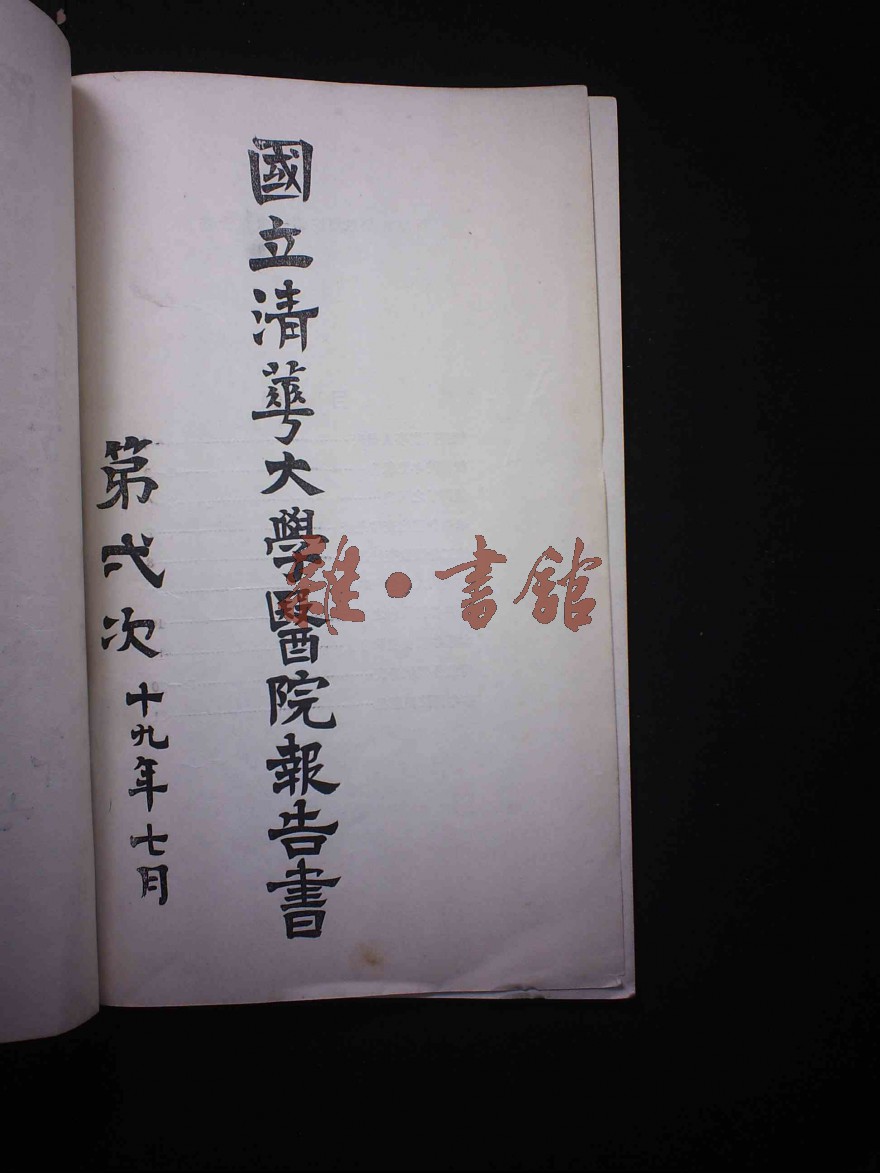 國立清華大學醫院報告書
第弍次 十九年七月
雜·書館